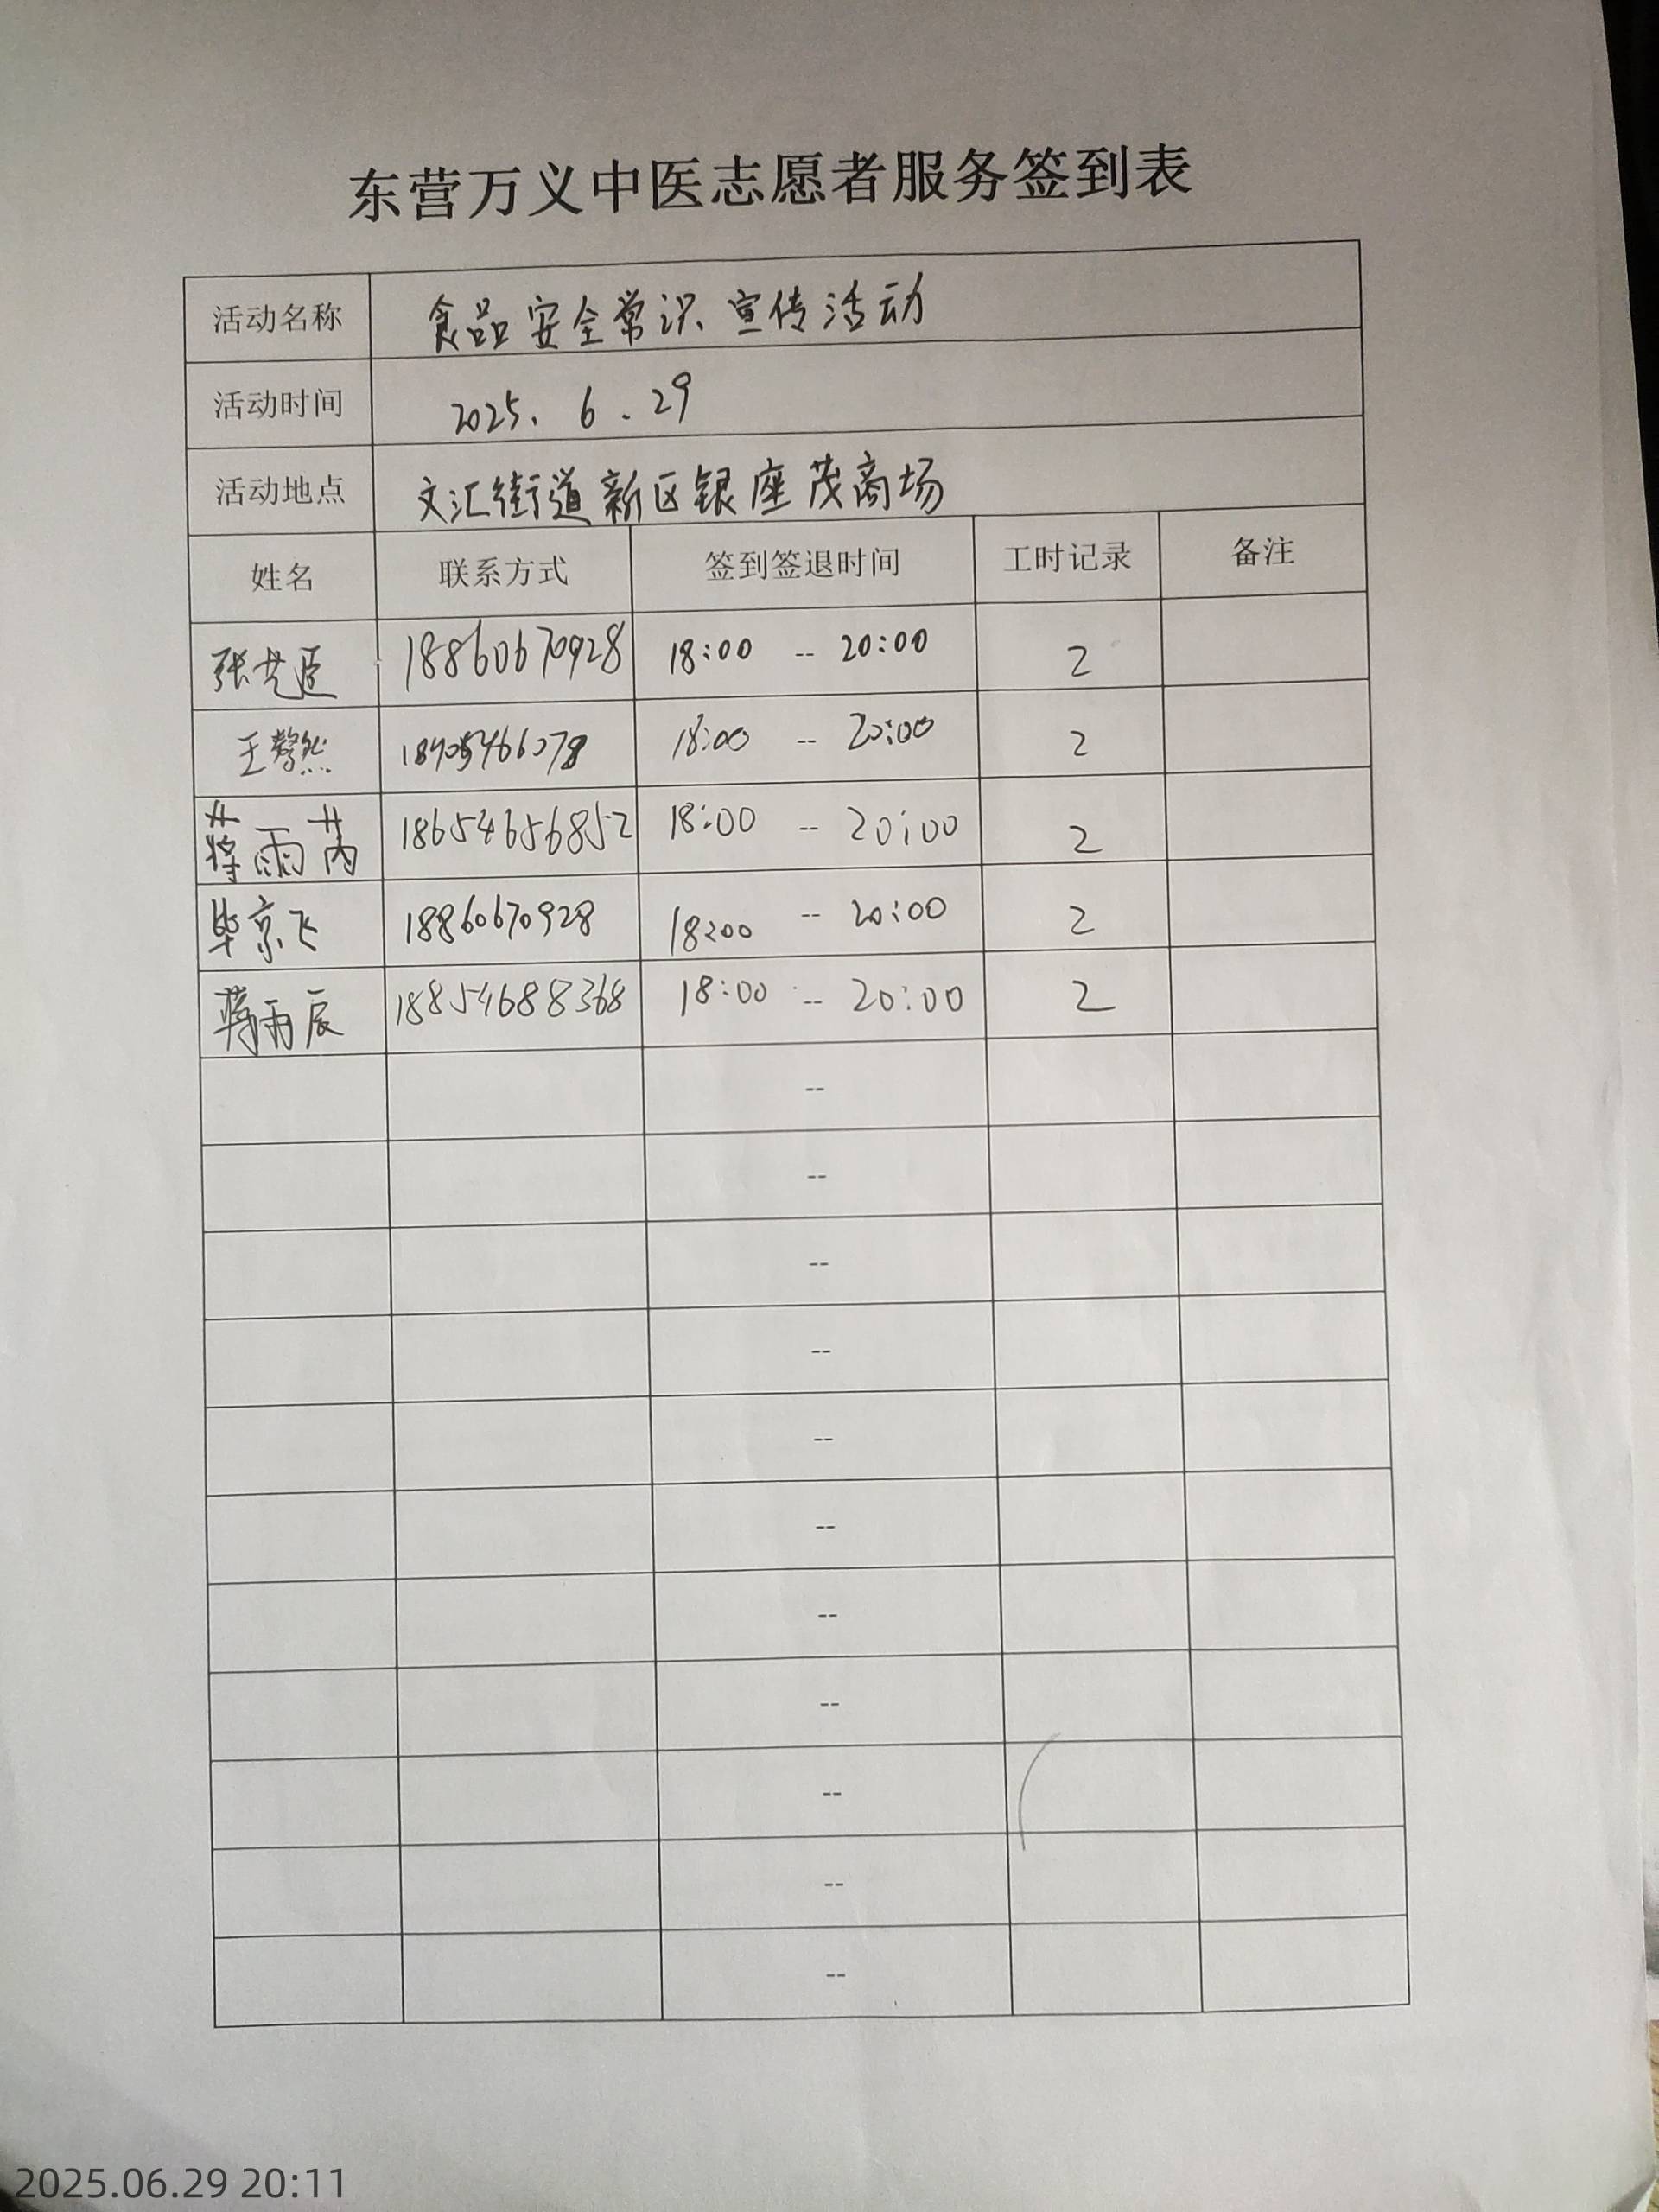 东营万义中医志愿者服务签到表
活动名称 食品安全常识宣传活动
活动时间 2025. 6. 29
活动地点 文汇街道新区银座茂商场
姓名 联系方式 签到签退时间 工时记录 备注
张 18860670928 18:00 -- 20:00 2
王 然 18:00 -- 20:00 2
蒋雨芮 18654656852 18:00 -- 20:00 2
毕京飞 18860670928 18:00 -- 20:00 2
蒋雨辰 18854688368 18:00 -- 20:00 2
--
--
--
--
--
--
--
--
--
--
--
2025.06.29 20:11